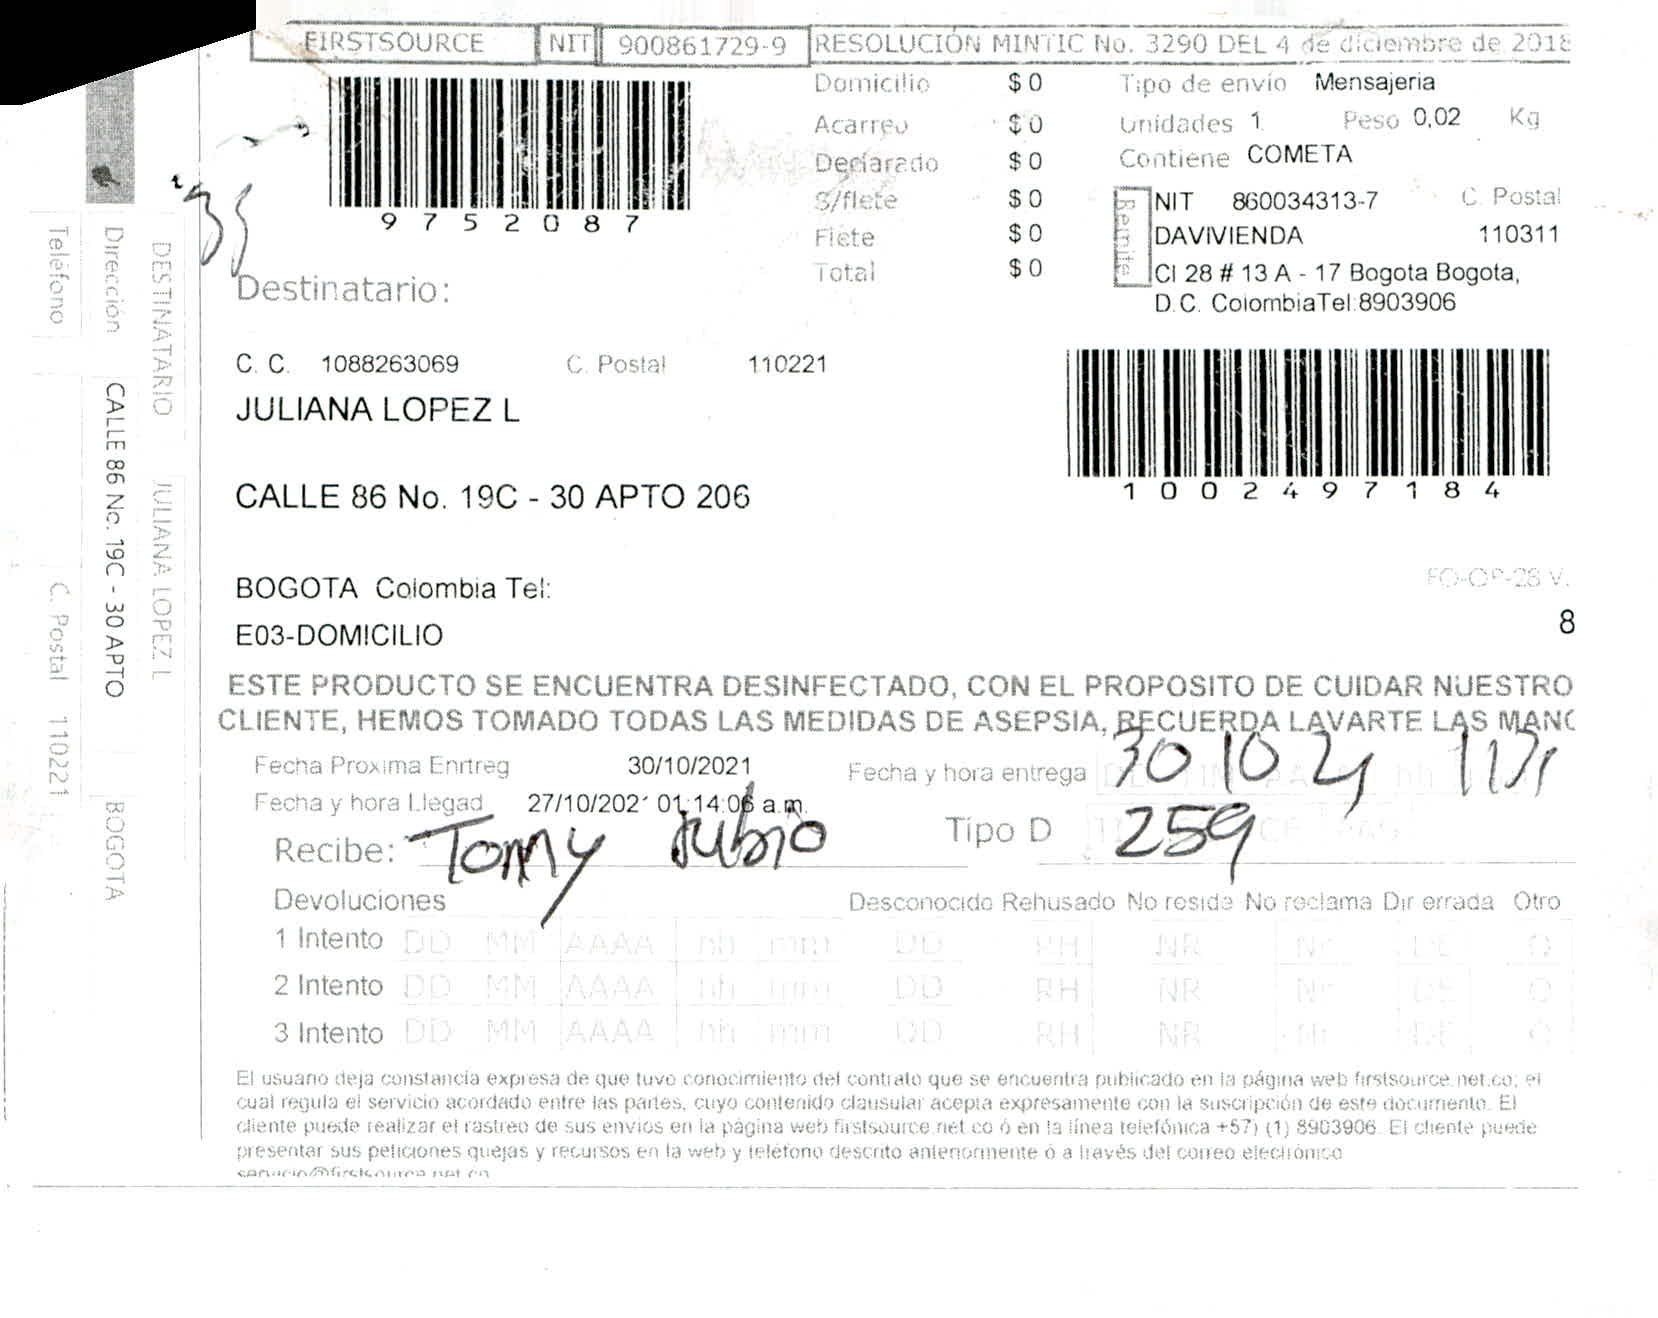 FIRSTSOURCE NIT 900861729-9 RESOLUCIÓN MINTIC No. 3290 DEL 4 de diciembre de 2018
Domicilio $ 0 Tipo de envío Mensajeria
Acarreo $ 0 Unidades 1 Peso 0,02 Kg
Declarado $ 0 Contiene COMETA
S/flete $ 0
Flete $ 0
Total $ 0
9752087
Remite
NIT 860034313-7 C. Postal
DAVIVIENDA 110311
Cl 28 # 13 A - 17 Bogota Bogota,
D.C. ColombiaTel:8903906
Destinatario:
C. C. 1088263069 C. Postal 110221
JULIANA LOPEZ L
CALLE 86 No. 19C - 30 APTO 206
1002497184
BOGOTA Colombia Tel:
E03-DOMICILIO
FO-OP-28 V.
8
ESTE PRODUCTO SE ENCUENTRA DESINFECTADO, CON EL PROPOSITO DE CUIDAR NUESTRO
CLIENTE, HEMOS TOMADO TODAS LAS MEDIDAS DE ASEPSIA, RECUERDA LAVARTE LAS MANO
Fecha Proxima Enrtreg 30/10/2021 Fecha y hora entrega 30 10 21
Fecha y hora Llegad 27/10/2021 01:14:06 a.m.
Recibe: Tomy Rubio Tipo D 259
Devoluciones Desconocido Rehusado No reside No reclama Dir errada Otro
1 Intento DD MM AAAA hh mm DD RH NR Nr DE O
2 Intento DD MM AAAA hh mm DD RH NR Nr DE O
3 Intento DD MM AAAA hh mm DD RH NR Nr DE O
El usuario deja constancia expresa de que tuvo conocimiento del contrato que se encuentra publicado en la página web firstsource.net.co; el
cual regula el servicio acordado entre las partes, cuyo contenido clausular acepta expresamente con la suscripción de este documento. El
cliente puede realizar el rastreo de sus envios en la página web firstsource.net.co ó en la línea telefónica +57) (1) 8903906. El cliente puede
presentar sus peticiones quejas y recursos en la web y teléfono descrito anteriormente ó a través del correo electrónico
servicio@firstsource.net.co
DESTINATARIO JULIANA LOPEZ L
Dirección CALLE 86 No. 19C - 30 APTO BOGOTA
Teléfono C. Postal 110221